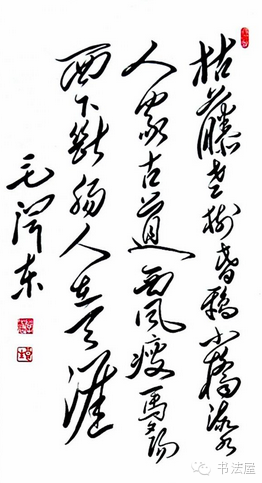 枯藤老树昏鸦小橋流水
人家古道西风瘦馬夕阳
西下断肠人在天涯
毛泽东
书法屋